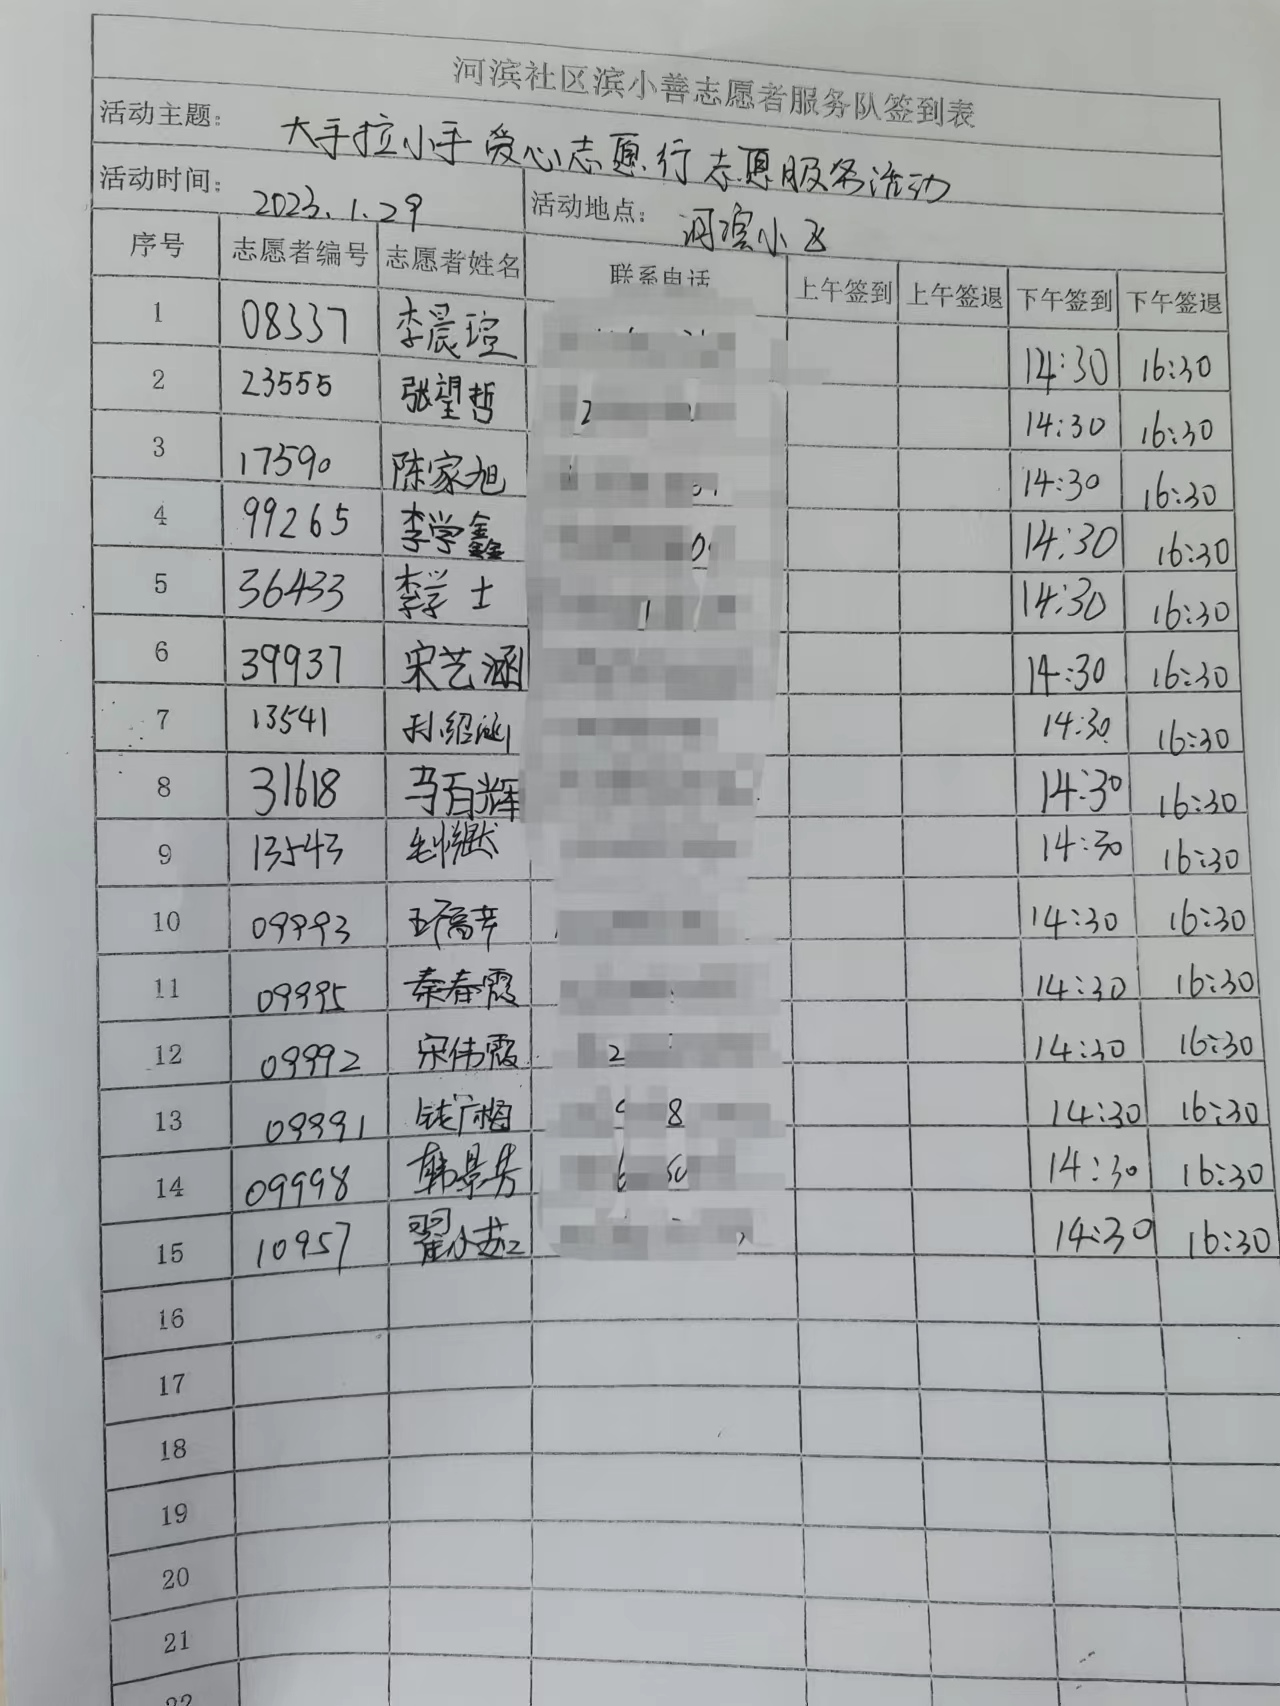 河滨社区滨小善志愿者服务队签到表
活动主题： 大手拉小手 爱心志愿行 志愿服务活动
活动时间： 2023.1.29 活动地点： 河滨小区
序号 志愿者编号 志愿者姓名 联系电话 上午签到 上午签退 下午签到 下午签退
1 08337 李晨瑄 14:30 16:30
2 23555 张望哲 14:30 16:30
3 17590 陈家旭 14:30 16:30
4 99265 李学鑫 14:30 16:30
5 36433 李学士 14:30 16:30
6 39937 宋艺涵 14:30 16:30
7 13541 孙绍涵 14:30 16:30
8 31618 马百辉 14:30 16:30
9 13543 14:30 16:30
10 09993 14:30 16:30
11 09995 秦春霞 14:30 16:30
12 09992 宋伟霞 14:30 16:30
13 09991 14:30 16:30
14 09998 韩景芳 14:30 16:30
15 10957 翟小 14:30 16:30
16
17
18
19
20
21
22